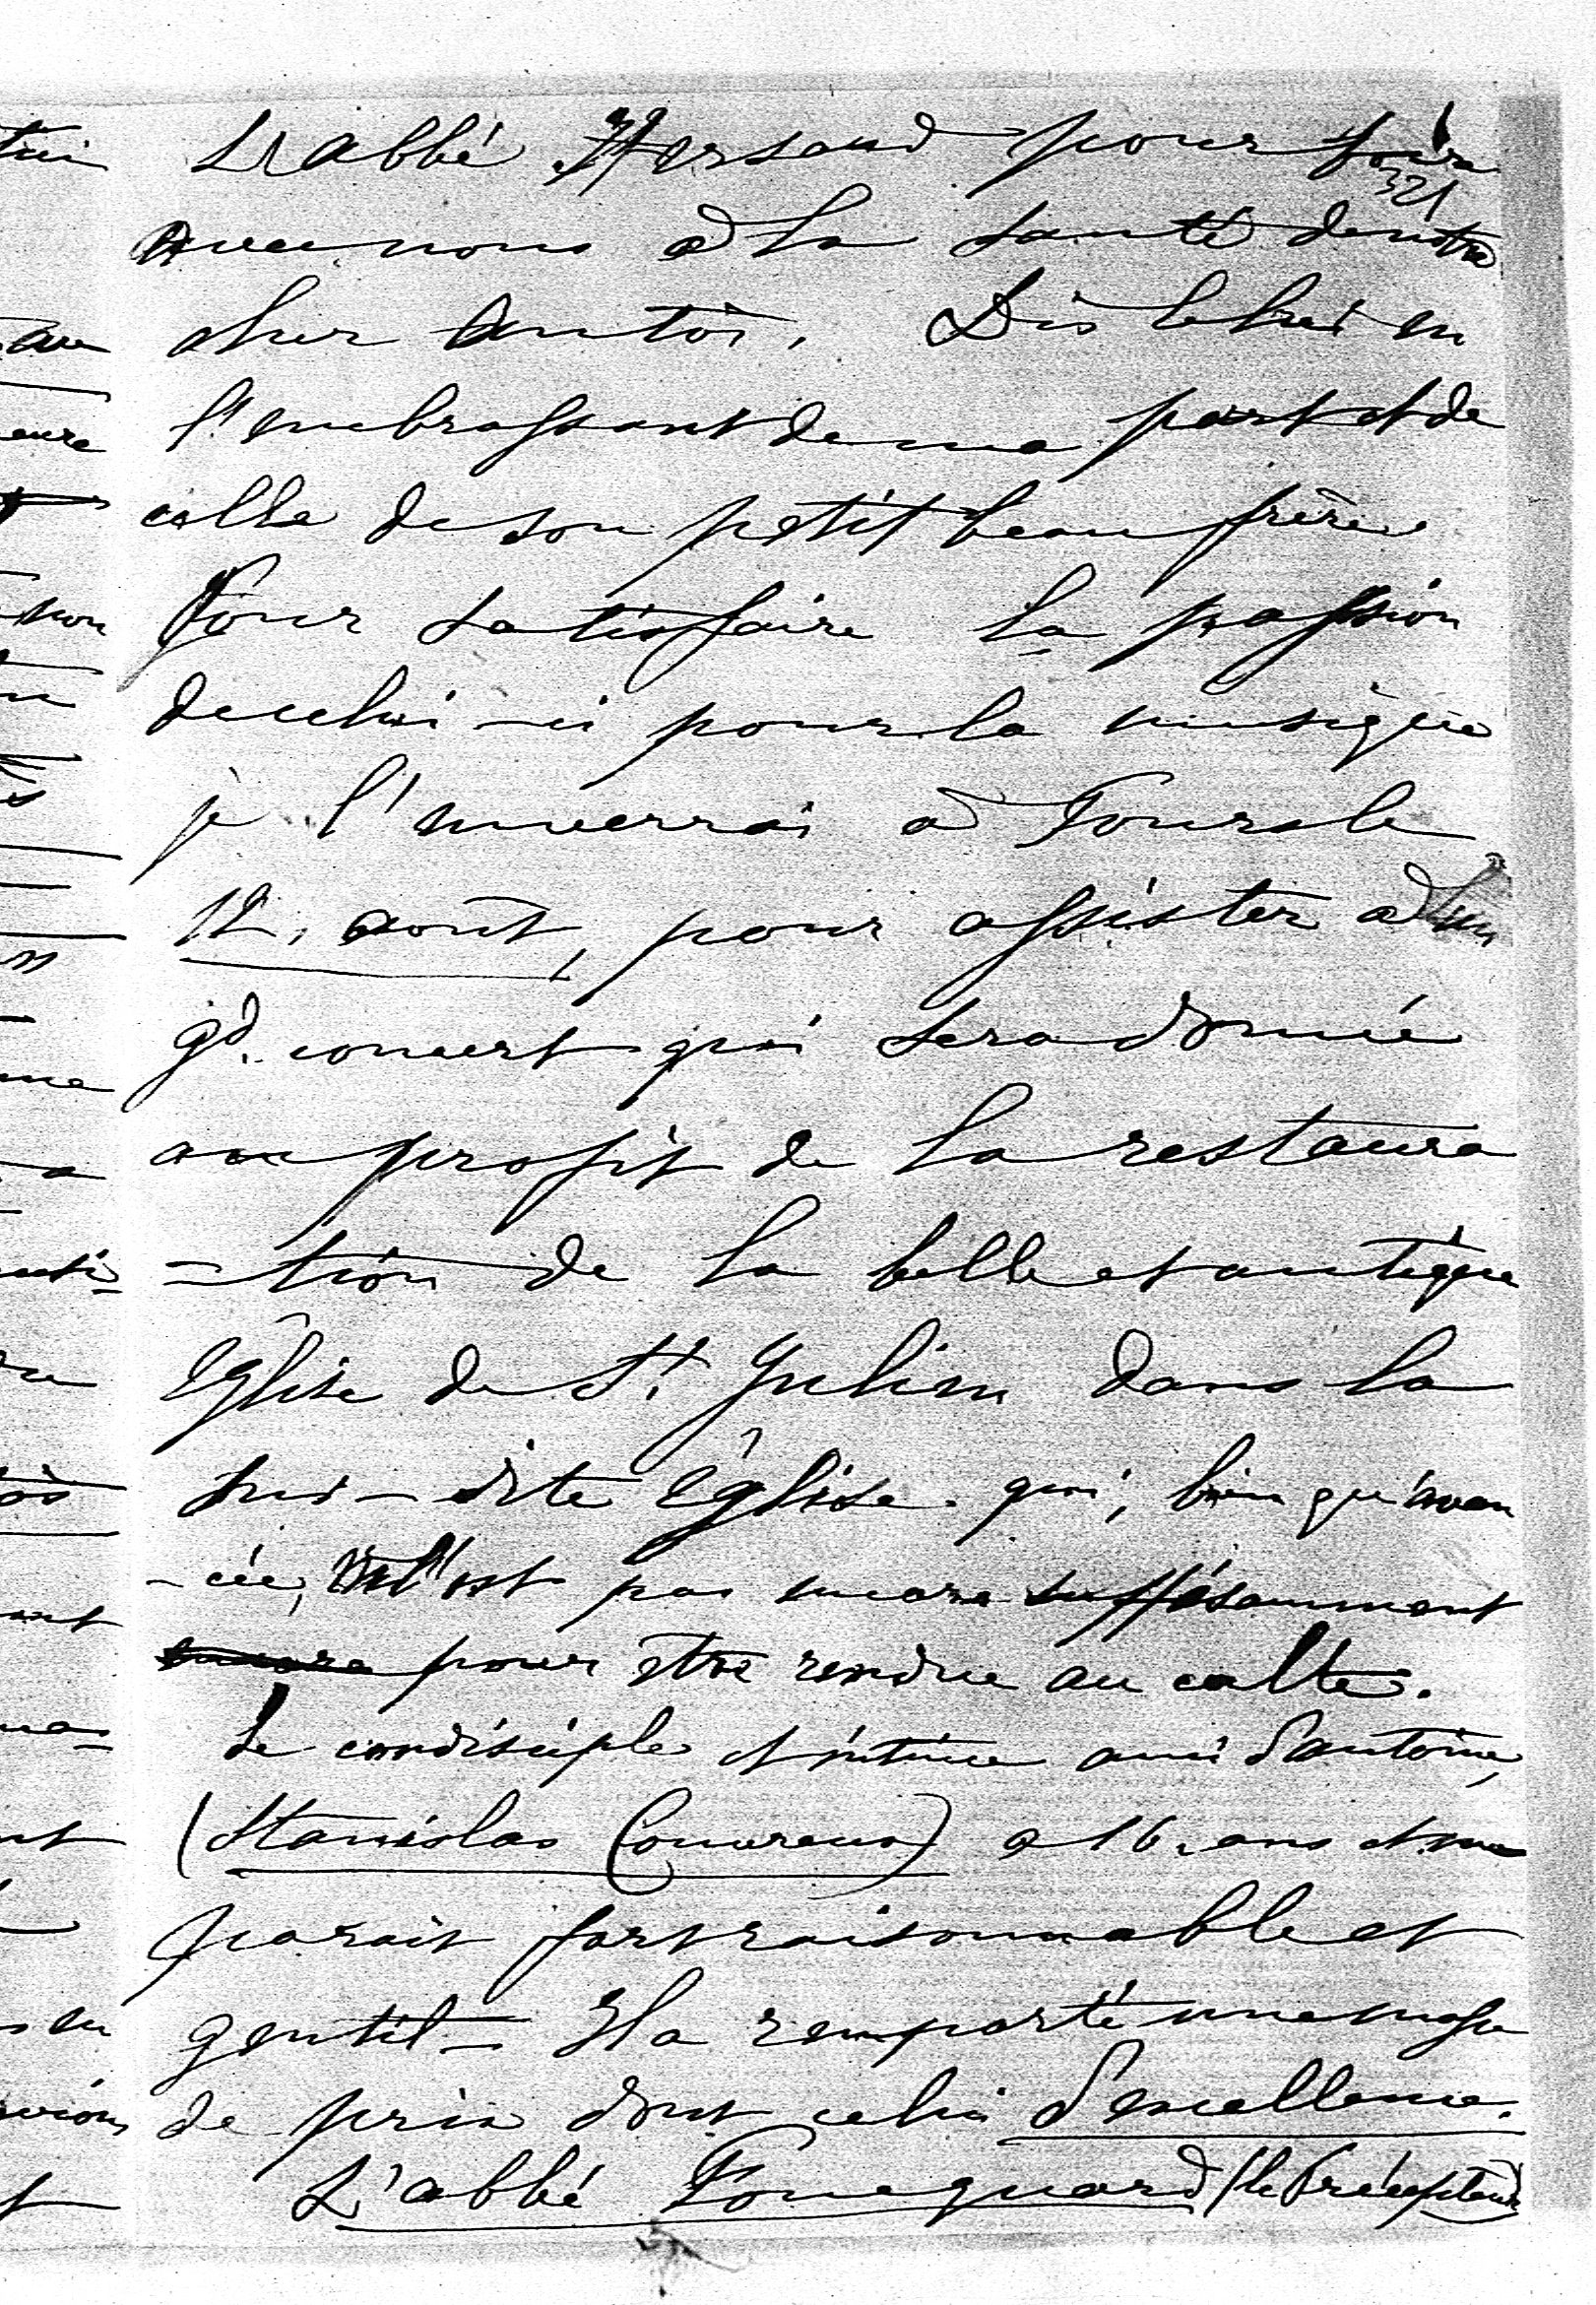 L'abbé Hersand pour boire
321
avec nous à la santé de notre
cher Antoi. Dis le lui en
l'embrassant de ma part et de
celle de son petit beau frère
Pour satisfaire la passion
de celui-ci pour la musique
je l'enverrai à Tours le
12, août, pour assister à un
gd. concert qui sera donné
au profit de la restaura
-tion de la belle et antique
Eglise de St. Julien dans la
sus-dite Eglise qui, bien qu'avan
-cée, n'est pas encore suffisamment
encore pour être rendue au culte.
Le condisciple et intime ami d'antoine,
(Stanislas Couvreux) a 16, ans et me
parait fort raisonnable et
gentil - Il a remporté une masse
de prix dont celui d'excellence.
L'abbé Fouquard (le Précepteur